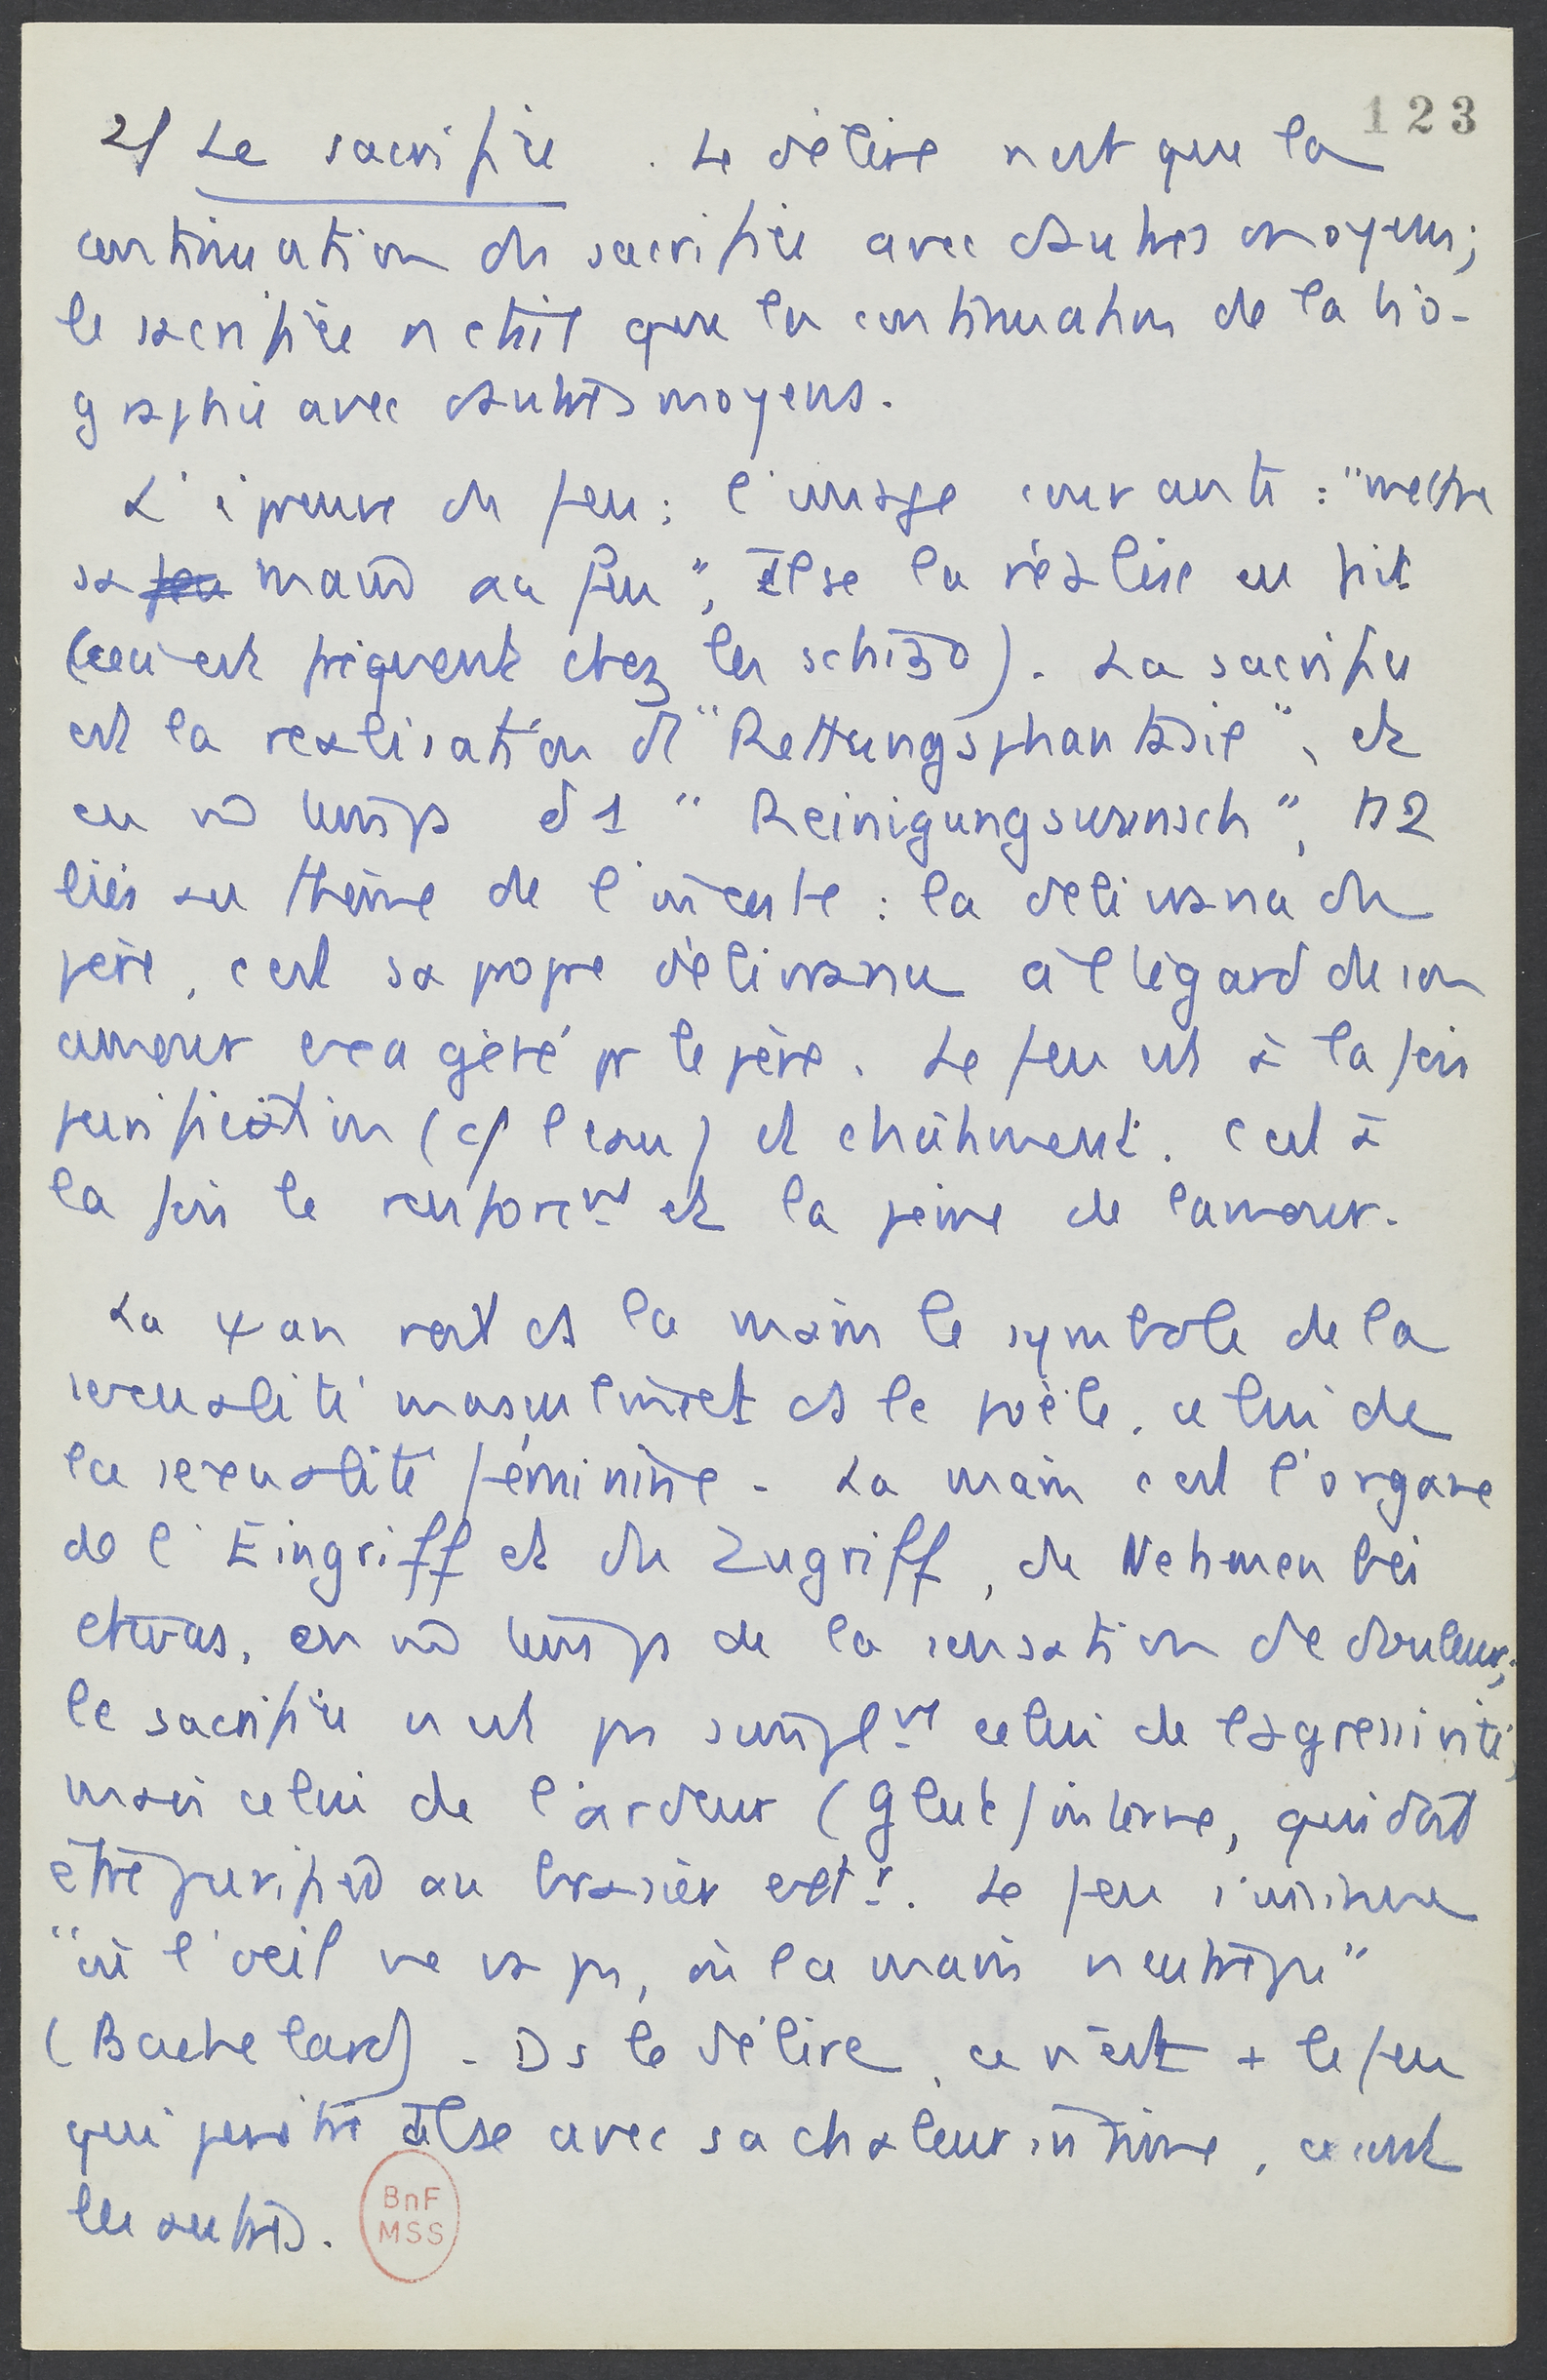 123
2/ Le sacrifice. Le délire n'est que la
continuation du sacrifice avec d'autres moyens;
le sacrifice n'était que la continuation de la bio-
graphie avec d'autres moyens.
L'épreuve du feu : l'image courante : "mettre
sa feu main au feu", Ilse la réalise en fait
(ceci est fréquent chez les schizo). La sacrifice
est la réalisation d'1 "Rettungsphantasie", et
en m̂ temps d'1 "Reinigungswunsch", ts 2
liés au thème de l'inceste : la délivrance du
père, c'est sa propre délivrance à l'égard de son
amour exagéré pr le père. Le feu est à la fois
purification (cf l'eau) et châtiment. C'est à
la fois le renforcmt et la peine de l'amour.
La ψan voit ds la main le symbole de la
sexualité masculine et ds le poêle, celui de
la sexualité féminine. La main c'est l'organe
de l'Eingriff et du Zugriff, du Nehmen bei
etwas, en m̂ temps de la sensation de douleur;
le sacrifice n'est pas simplmt celui de l'agressivité,
mais celui de l'ardeur (Glut) interne, qui doit
être purifiée au brasier extr. Le feu s'insinue
"où l'oeil ne va pas, où la main n'entre pas"
(Bachelard). Ds le délire, ce n'est + le feu
qui pénètre Ilse avec sa chaleur intime, ce sont
les autres.
BnF
MSS